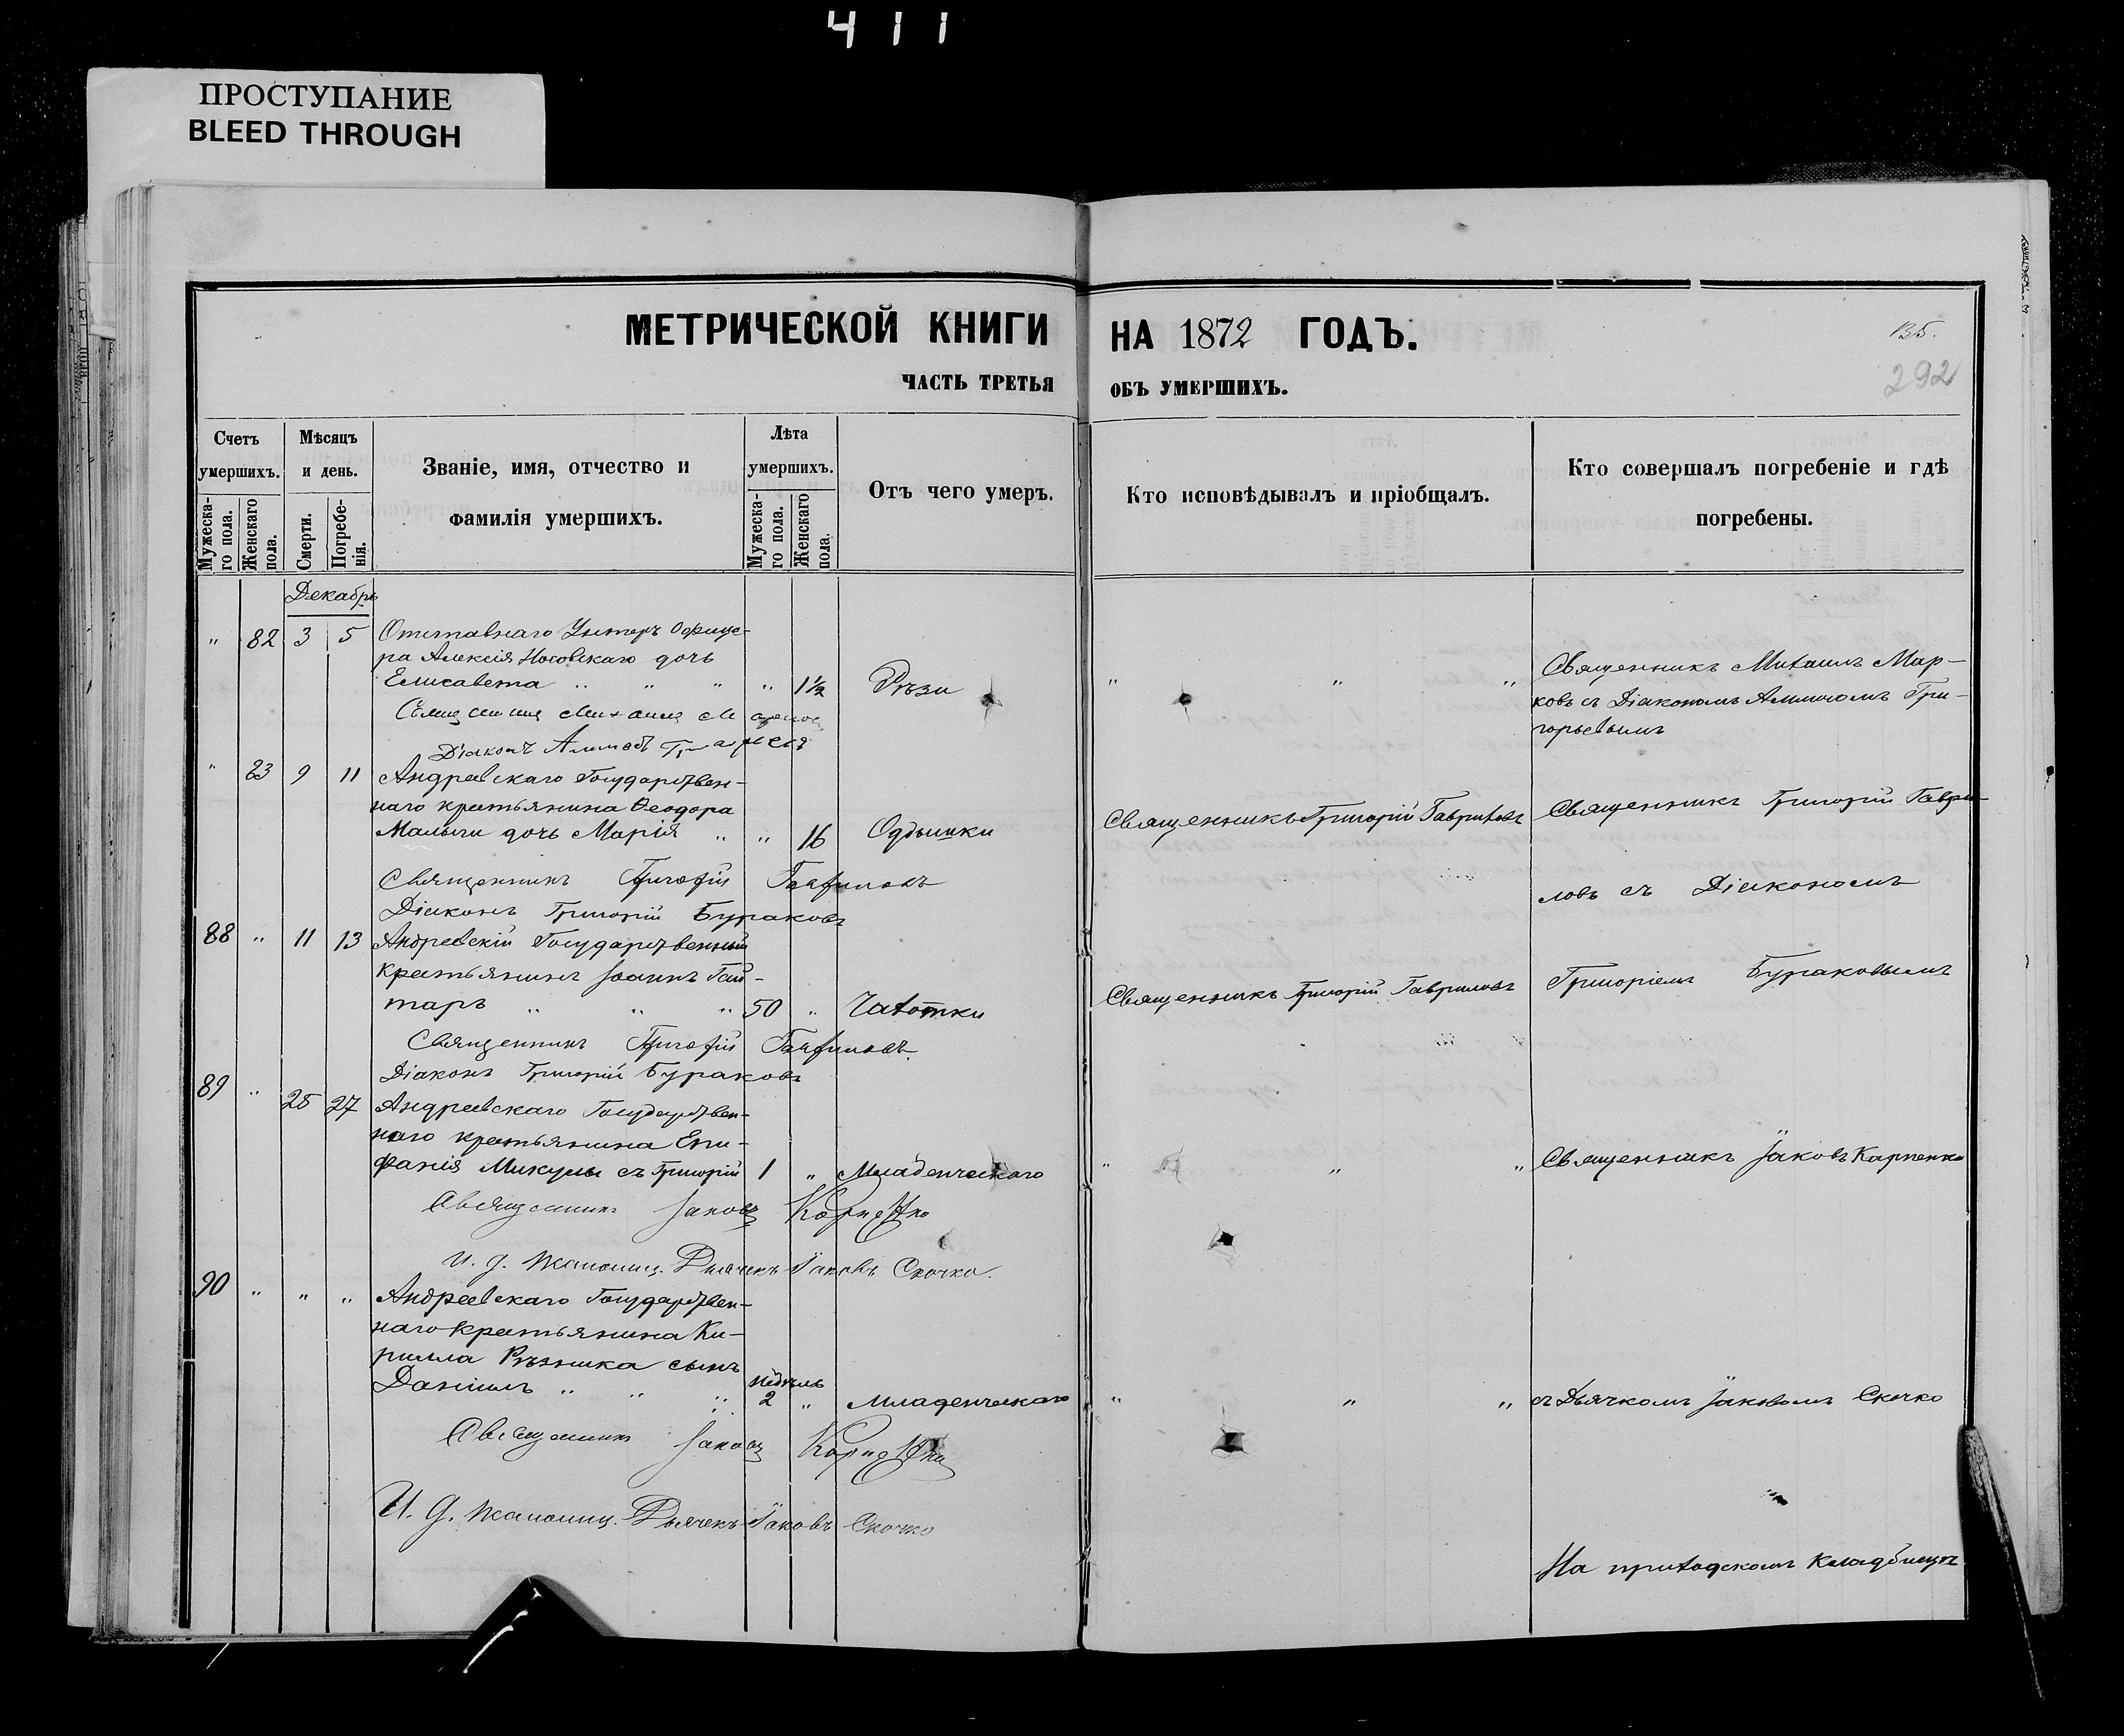 411
ПРОСТУПАНИЕ
BLEED THROUGH
МЕТРИЧЕСКОЙ КНИГИ НА 1872 ГОДЪ.
ЧАСТЬ ТРЕТЬЯ ОБЪ УМЕРШИХЪ.
292
Счетъ умершихъ.
Мужеска-
го пола.
Женскаго
пола.
Мѣсяцъ
и день.
Смерти.
Погребе-
нія.
Званіе, имя, отчество и
фамилія умершихъ.
Лѣта
умершихъ.
Мужеска-
го пола.
Женскаго
пола.
Отъ чего умеръ.
Кто исповѣдывалъ и пріобщалъ.
Кто совершалъ погребеніе и гдѣ
погребены.
Декабрь
" 82 3 5 Отставнаго Унтеръ Офице-
ра Алексія Носовскаго дочь
Елисавета " " " " 1½ Рѣзи " " "
Священникъ Михаилъ Мар-
ковъ съ Діакономъ Григорьевымъ
Діаконъ
" 83 9 11 Андреевскаго Государствен-
наго крестьянина Ѳеодора
Малыги дочь Марія " " 16 Одышки Священникъ Григорій Гавриловъ Священникъ Григорій Гаври-
Священникъ Григорій Гавриловъ
ловъ съ Діакономъ
Діаконъ Григорій Бураковъ
88 " 11 13 Андреевскій Государственный
крестьянинъ Іоаннъ Гай-
таръ " " " 50 " Чахотки Священникъ Григорій Гавриловъ Григоріемъ Бураковымъ
Священникъ Григорій Гавриловъ.
Діаконъ Григорій Бураковъ
89 " 25 27 Андреевскаго Государствен-
наго крестьянина Епи-
фанія Микулы съ Григорій 1 " Младенческаго " " " Священникъ Іаковъ Карпенко
Священникъ Іаковъ Карпенко
И. д. Псаломщ. Дьячекъ Іаковъ Скочко.
90 " " " Андреевскаго Государствен-
наго крестьянина Ки-
рилла Рѣзника сынъ
Даніилъ " " " недѣль 2 " Младенческаго " " " съ Дьячкомъ Іаковомъ Скочко
Священникъ Іаковъ Карпенко
И. д. Псаломщ. Дьячекъ Іаковъ Скочко
На приходскомъ кладбищѣ